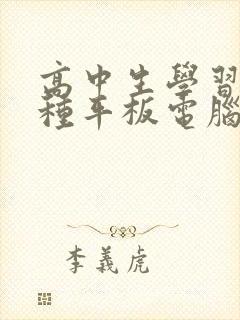 高中生學習
種平板電腦
李義虎